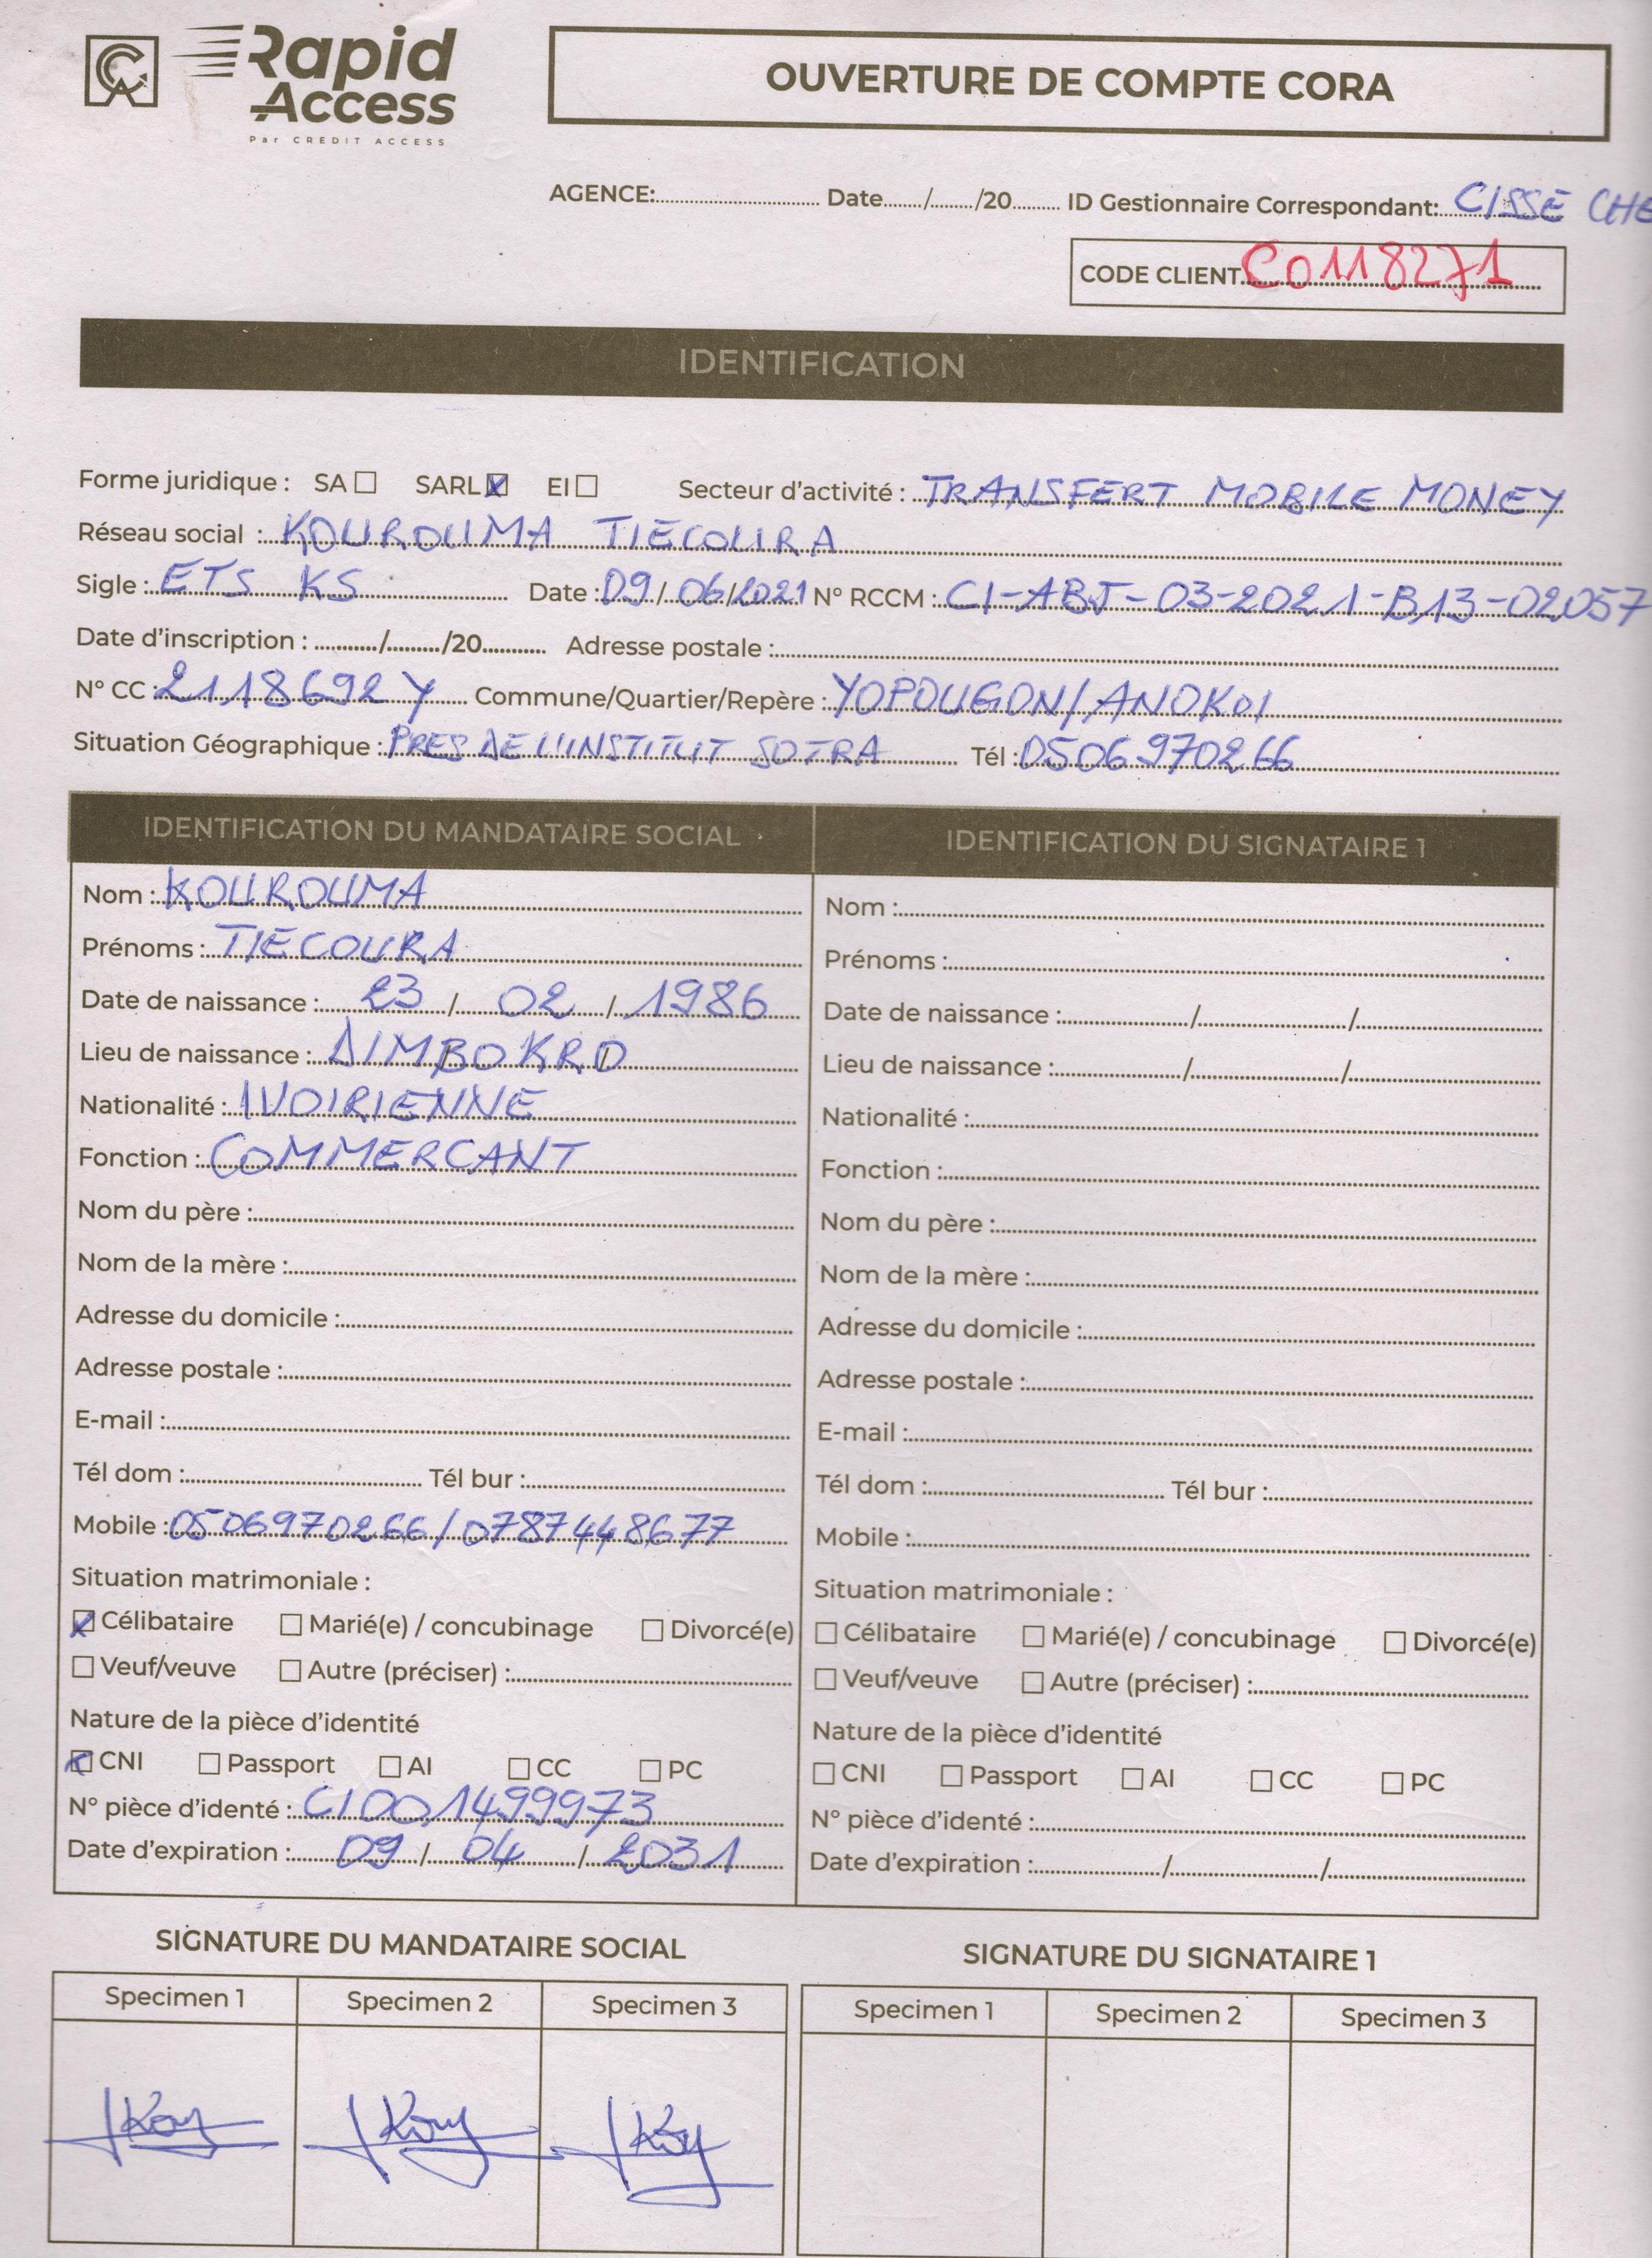 CA Rapid Access
Par CREDIT ACCESS
OUVERTURE DE COMPTE CORA
AGENCE:........ Date....../....../20...... ID Gestionnaire Correspondant: CISSE CHE
CODE CLIENT C0118271
IDENTIFICATION
Forme juridique : SA ☐ SARL ☒ EI ☐ Secteur d'activité : TRANSFERT MOBILE MONEY
Réseau social : KOUROUMA TIECOURA
Sigle : ETS KS Date : 09/06/2021 N° RCCM : CI-ABJ-03-2021-B13-02057
Date d'inscription : ....../....../20...... Adresse postale :
N° CC : 2118692 Y Commune/Quartier/Repère : YOPOUGON/ANOKOI
Situation Géographique : PRES DE L'INSTITUT SOTRA Tél : 0506970266
IDENTIFICATION DU MANDATAIRE SOCIAL
Nom : KOUROUMA
Prénoms : TIECOURA
Date de naissance : 23 / 02 / 1986
Lieu de naissance : DIMBOKRO
Nationalité : IVOIRIENNE
Fonction : COMMERCANT
Nom du père :
Nom de la mère :
Adresse du domicile :
Adresse postale :
E-mail :
Tél dom : Tél bur :
Mobile : 0506970266/0787448677
Situation matrimoniale :
☒ Célibataire ☐ Marié(e) / concubinage ☐ Divorcé(e)
☐ Veuf/veuve ☐ Autre (préciser) :
Nature de la pièce d'identité
☒ CNI ☐ Passport ☐ AI ☐ CC ☐ PC
N° pièce d'identé : CI001499973
Date d'expiration : 09 / 04 / 2031
IDENTIFICATION DU SIGNATAIRE 1
Nom :
Prénoms :
Date de naissance : / /
Lieu de naissance : / /
Nationalité :
Fonction :
Nom du père :
Nom de la mère :
Adresse du domicile :
Adresse postale :
E-mail :
Tél dom : Tél bur :
Mobile :
Situation matrimoniale :
☐ Célibataire ☐ Marié(e) / concubinage ☐ Divorcé(e)
☐ Veuf/veuve ☐ Autre (préciser) :
Nature de la pièce d'identité
☐ CNI ☐ Passport ☐ AI ☐ CC ☐ PC
N° pièce d'identé :
Date d'expiration : / /
SIGNATURE DU MANDATAIRE SOCIAL
Specimen 1 Specimen 2 Specimen 3
SIGNATURE DU SIGNATAIRE 1
Specimen 1 Specimen 2 Specimen 3